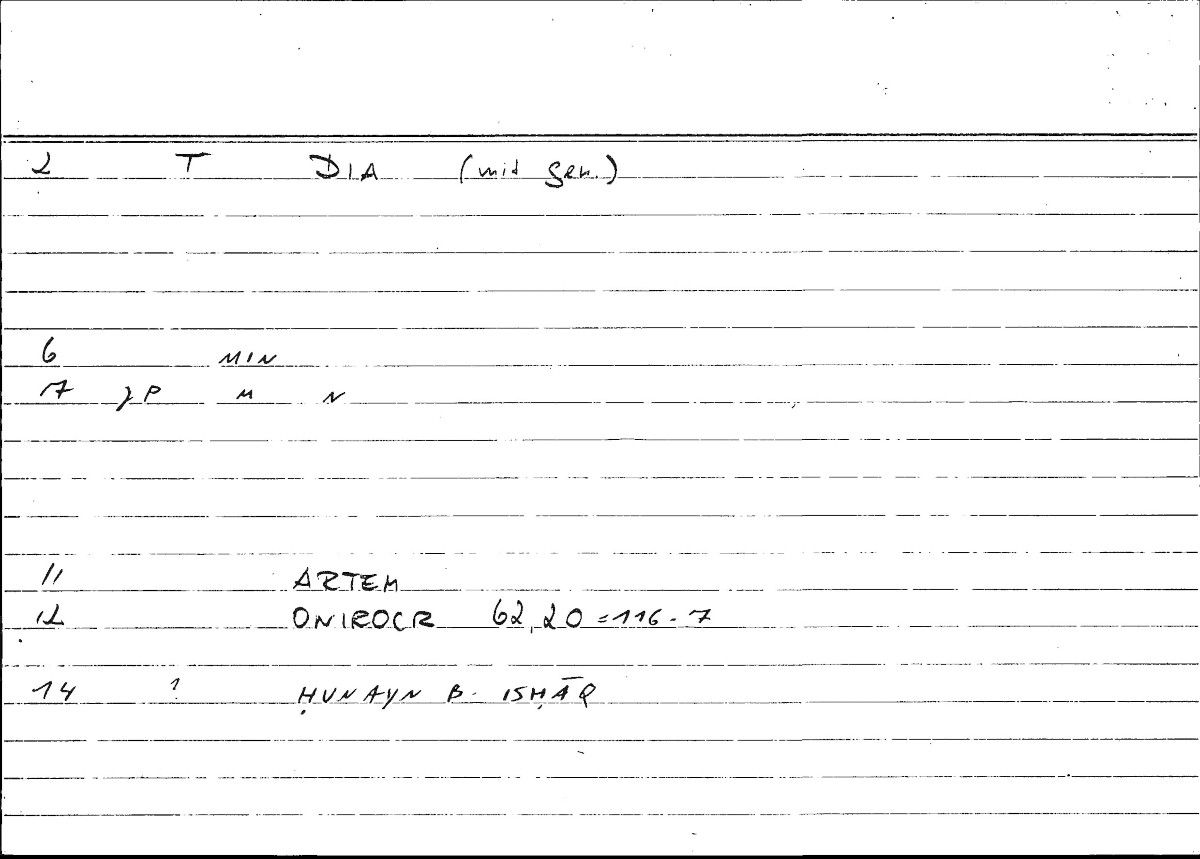 2 T DIA (mit gen.)
6 MIN
7 JP M N
11 ARTEM
12 ONIROCR 62,20 = 116-7
14 ? ḤUNAYN B. ISḤĀQ